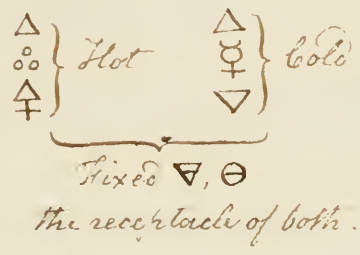 🜂 Hot 🜁 Cold
ஃ ☿
🜍 🜄
Fixed 🜃, 🜔
the receptacle of both.